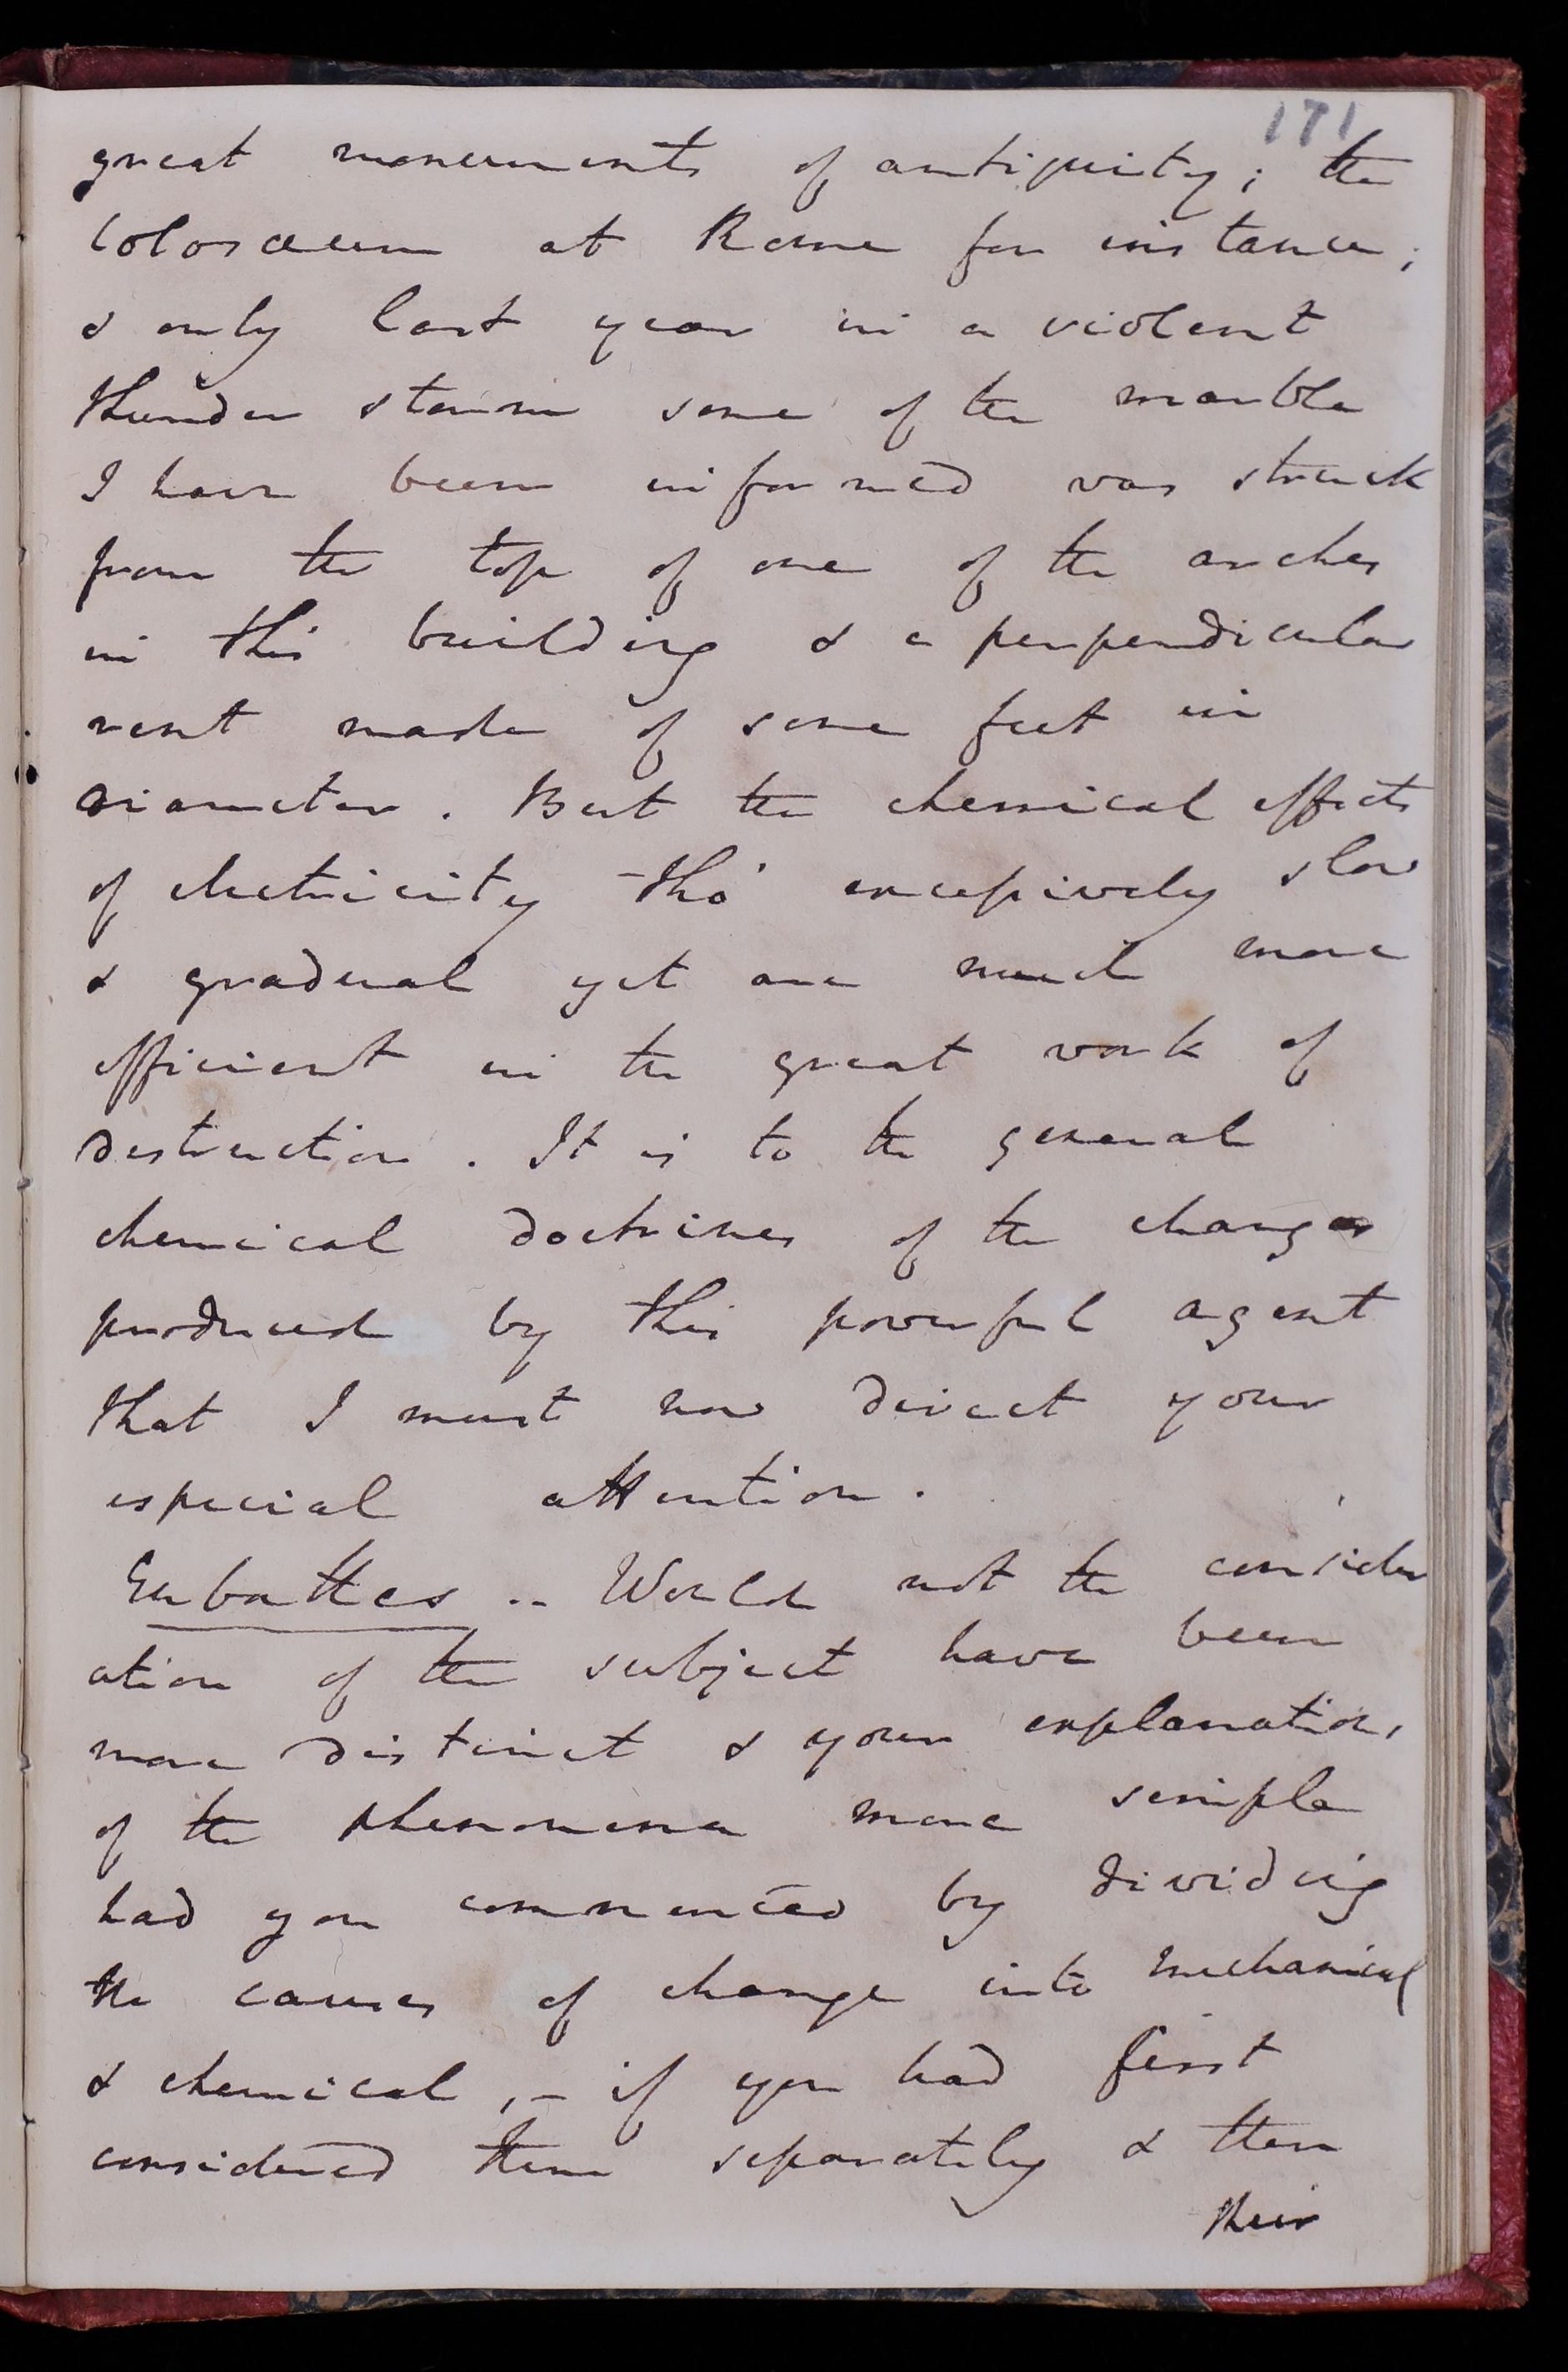 171
great monuments of antiquity; the
Colosæum at Rome for instance;
& only last year in a violent
thunder storm some of the marble
I have been informed was struck
from the top of one of the arches
in this building & a perpendicular
rent made of some feet in
diameter. But the chemical effects
of electricity tho' excessively slow
& gradual yet are much more
efficient in the great work of
destruction. It is to the general
chemical doctrines of the changes
produced by this powerful agent
that I must now direct your
especial attention.
Eubathes -- Would not the consider
ation of the subject have been
more distinct & your explanations
of the phenomena more simple
had you commenced by dividing
the causes of change into mechanical
& chemical, - if you had first
considered them separately & then
their